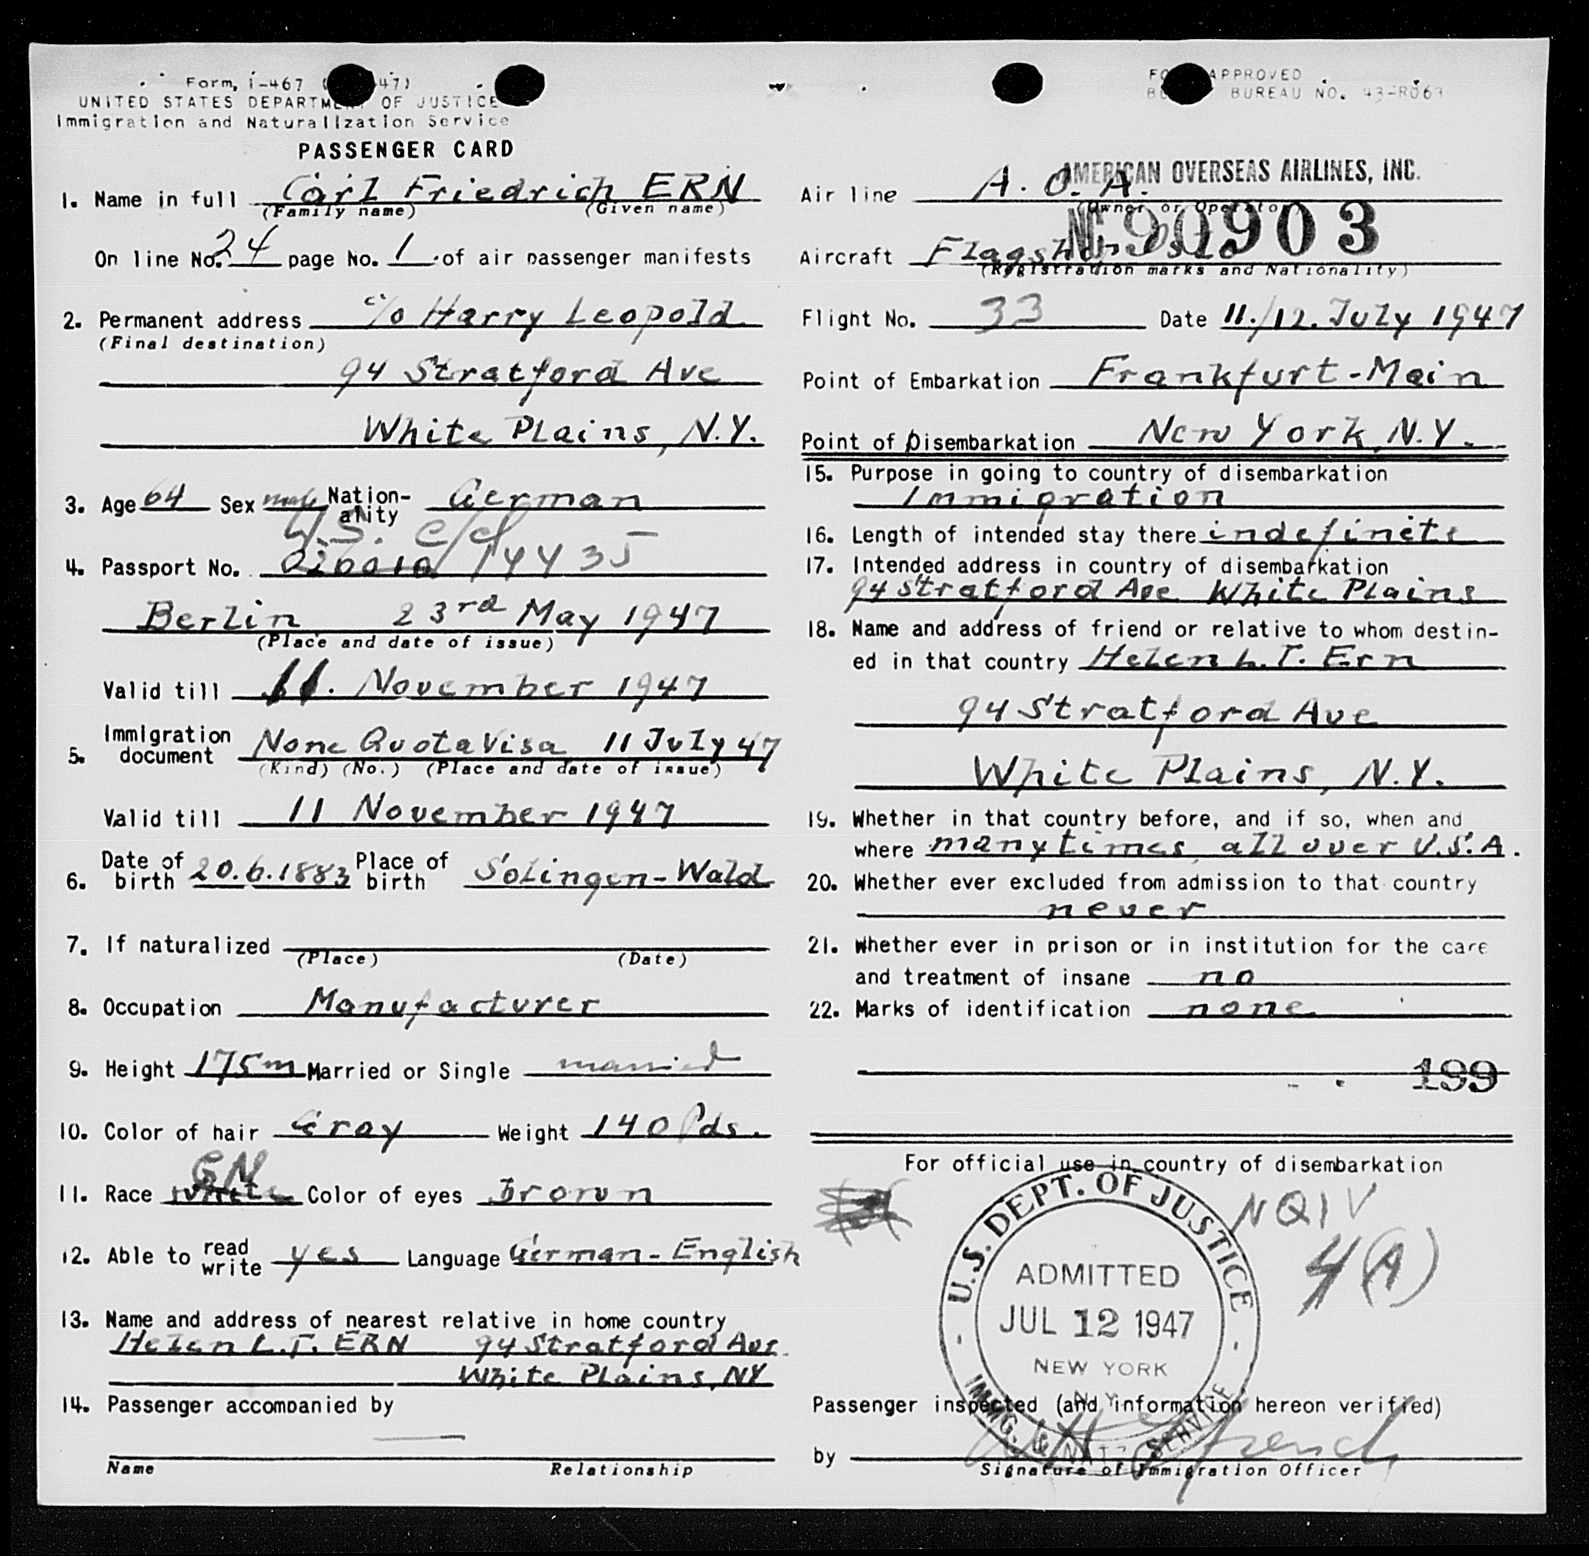 Form, I-467 47)
UNITED STATES DEPARTMENT OF JUSTICE
Immigration and Naturalization Service
PASSENGER CARD
1. Name in full Carl Friedrich ERN
(Family name) (Given name)
On line No. 24 page No. 1 of air passenger manifests
2. Permanent address c/o Harry Leopold
(Final destination)
94 Stratford Ave
White Plains, N.Y.
3. Age 64 Sex male Nation-ality German
U.S.
4. Passport No. 14435
Berlin 23rd May 1947
(Place and date of issue)
Valid till 11. November 1947
5. Immigration document None Quota Visa 11 July 47
(Kind) (No.) (Place and date of issue)
Valid till 11 November 1947
6. Date of birth 20.6.1883 Place of birth Solingen-Wald
7. If naturalized
(Place) (Date)
8. Occupation Manufacturer
9. Height 175m Married or Single married
10. Color of hair Gray Weight 140 Pds.
GN
11. Race white Color of eyes brown
12. Able to read write yes Language German-English
13. Name and address of nearest relative in home country
Helen L.T. ERN 94 Stratford Ave.
White Plains, NY
14. Passenger accompanied by
Name Relationship
APPROVED
BUREAU NO. 43-R063
AMERICAN OVERSEAS AIRLINES, INC.
Air line A.O.A.
(Owner or Operator)
No 90903
Aircraft Flagship Oslo
(Registration marks and Nationality)
Flight No. 33 Date 11./12. July 1947
Point of Embarkation Frankfurt-Main
Point of Disembarkation New York, N.Y.
15. Purpose in going to country of disembarkation
Immigration
16. Length of intended stay there indefinite
17. Intended address in country of disembarkation
94 Stratford Ave White Plains
18. Name and address of friend or relative to whom destin-
ed in that country Helen L.T. Ern
94 Stratford Ave
White Plains, N.Y.
19. Whether in that country before, and if so, when and
where many times all over U.S.A.
20. Whether ever excluded from admission to that country
never
21. Whether ever in prison or in institution for the care
and treatment of insane no
22. Marks of identification none
199
For official use in country of disembarkation
NQIV
4(A)
U.S. DEPT. OF JUSTICE
ADMITTED
JUL 12 1947
NEW YORK
N.Y.
IMMG. & NATZ. SERVICE
Passenger inspected (and information hereon verified)
by French
Signature of Immigration Officer